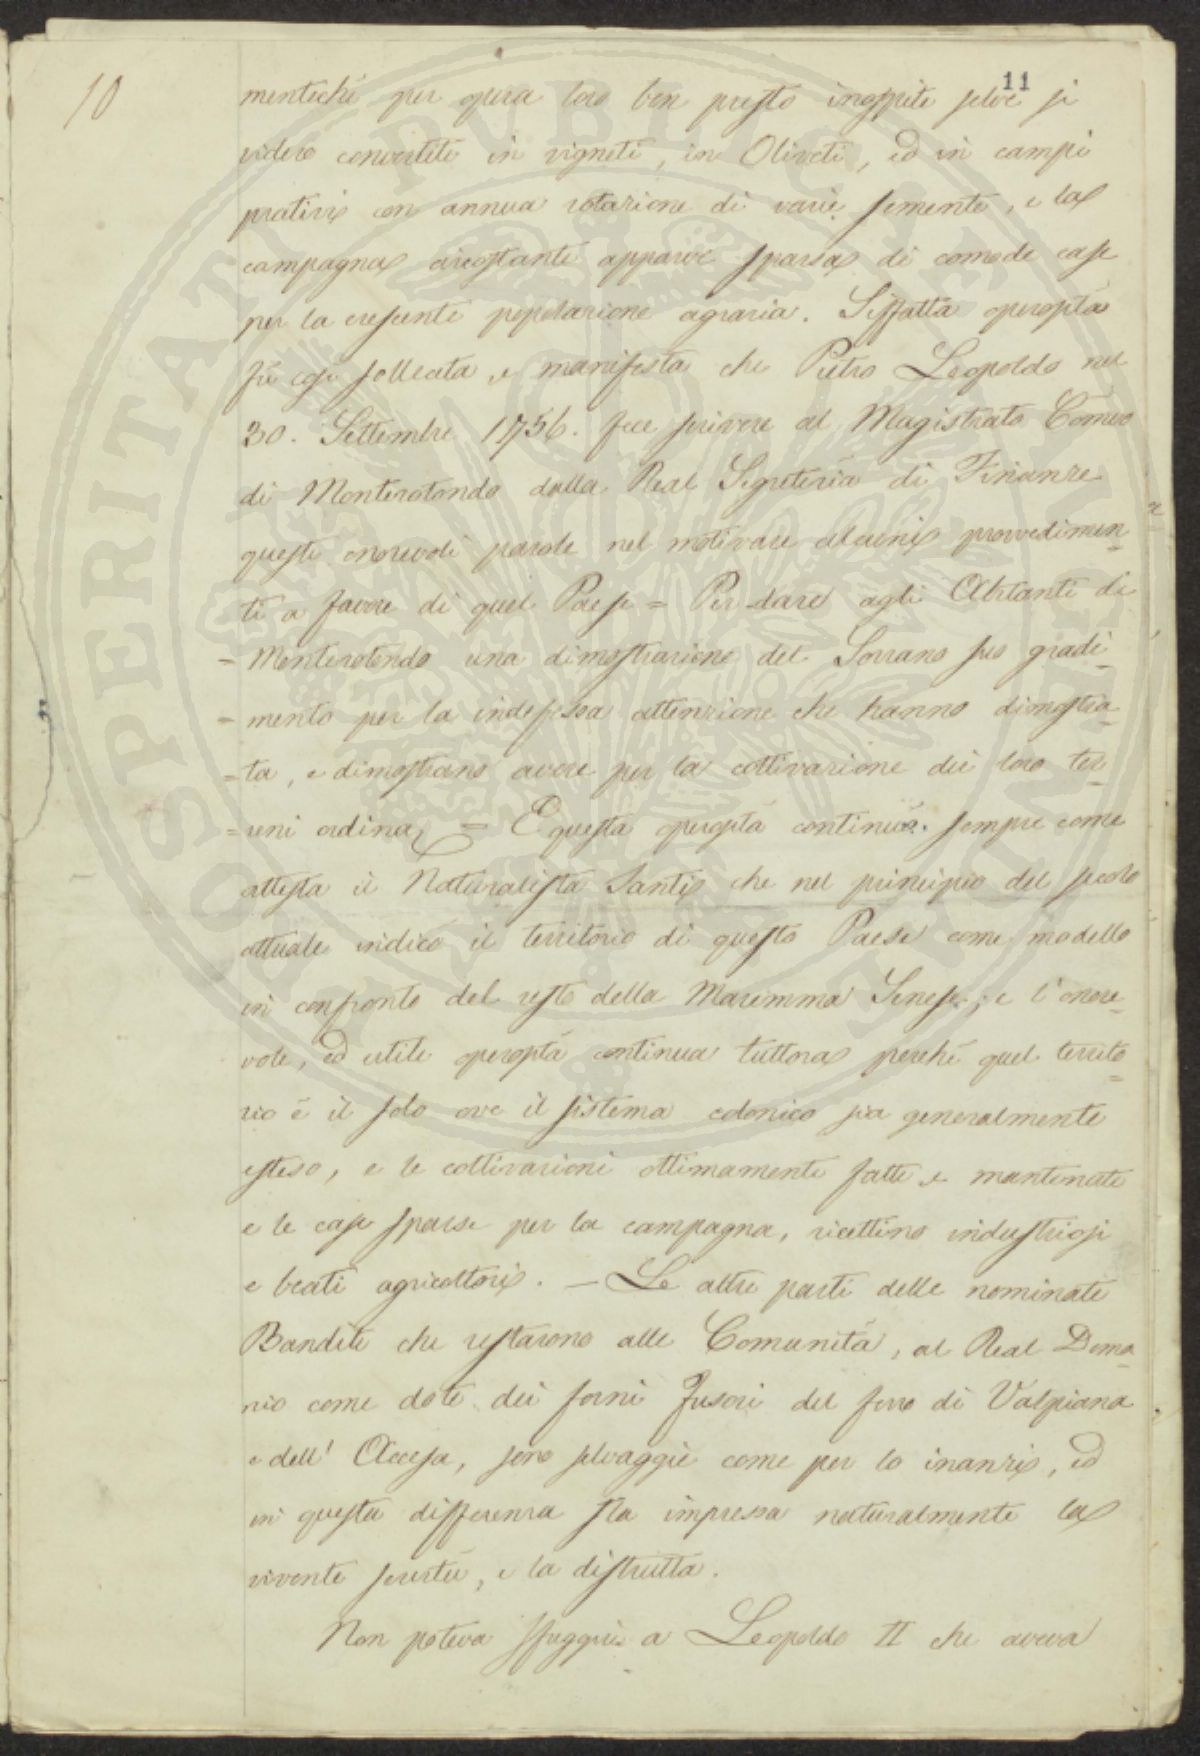 10
11
menteché per opera loro ben presto inospite selve si
videro convertite in vigneti, in Oliveti, ed in campi
prativi con annua rotazione di varie semente, e la
campagna circostante apparve sparsa di comode case
per la crescente popolazione agraria. Siffatta operosità
fù così sollecita e manifesta che Pietro Leopoldo nel
30. Settembre 1756. fece scrivere al Magistrato Comvo
di Monterotondo dalla Real Segreteria di Finanze
queste onorevoli parole nel motivare alcuni provvedimen=
ti a favore di quel Paese = Per dare agli Abitanti di
= Monterotondo una dimostrazione del Sovrano suo gradi=
= mento per la indefessa attenzione che hanno dimostra=
= ta, e dimostrano avere per la coltivazione dei loro ter=
= reni ordina, = E questa operosità continuà sempre come
attesta il Naturalista Santi che nel principio del secolo
attuale indicò il territorio di questo Paese come modello
in confronto del resto della Maremma Senese; e l'onore=
vole, ed utile operosità continua tuttora perché quel territo=
rio è il solo ove il sistema colonico sia generalmente
esteso, e le coltivazioni ottimamente fatte e mantenute
e le case sparse per la campagna, ricettino industriosi
e beati agricoltori. — Le altre parti delle nominate
Bandite che restarono alle Comunità, al Real Dema=
nio come dote dei forni fusori del ferro di Valpiana
e dell' Accesa, sono selvaggie come per lo inanzi, ed
in questa differenza sta impressa naturalmente la
vivente servitù, e la distrutta.
Non poteva sfuggire a Leopoldo II che aveva
SPERITATI PUBLICAE